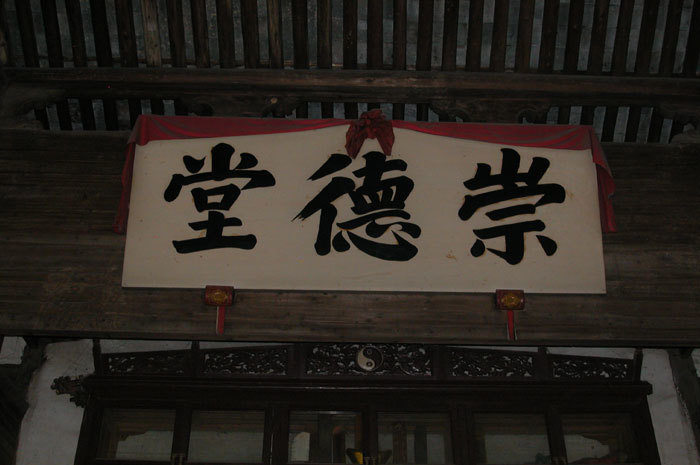 崇德堂